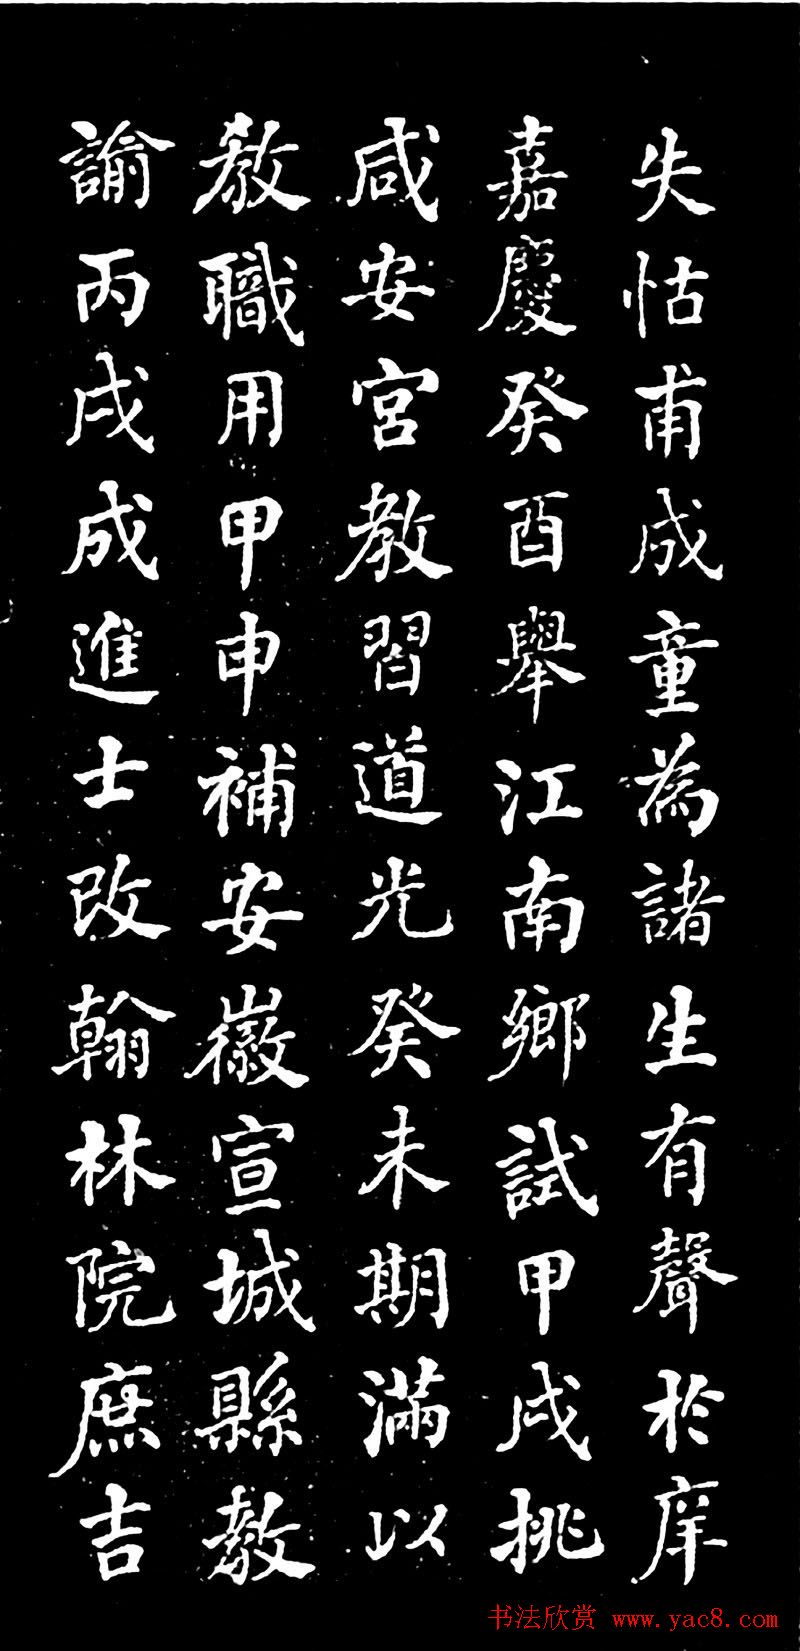 失怙甫成童為諸生有聲於庠
嘉慶癸酉舉江南鄉試甲戌挑
咸安宮教習道光癸未期滿以
教職用甲申補安徽宣城縣教
諭丙戌成進士改翰林院庶吉
书法欣赏 www.yac8.com